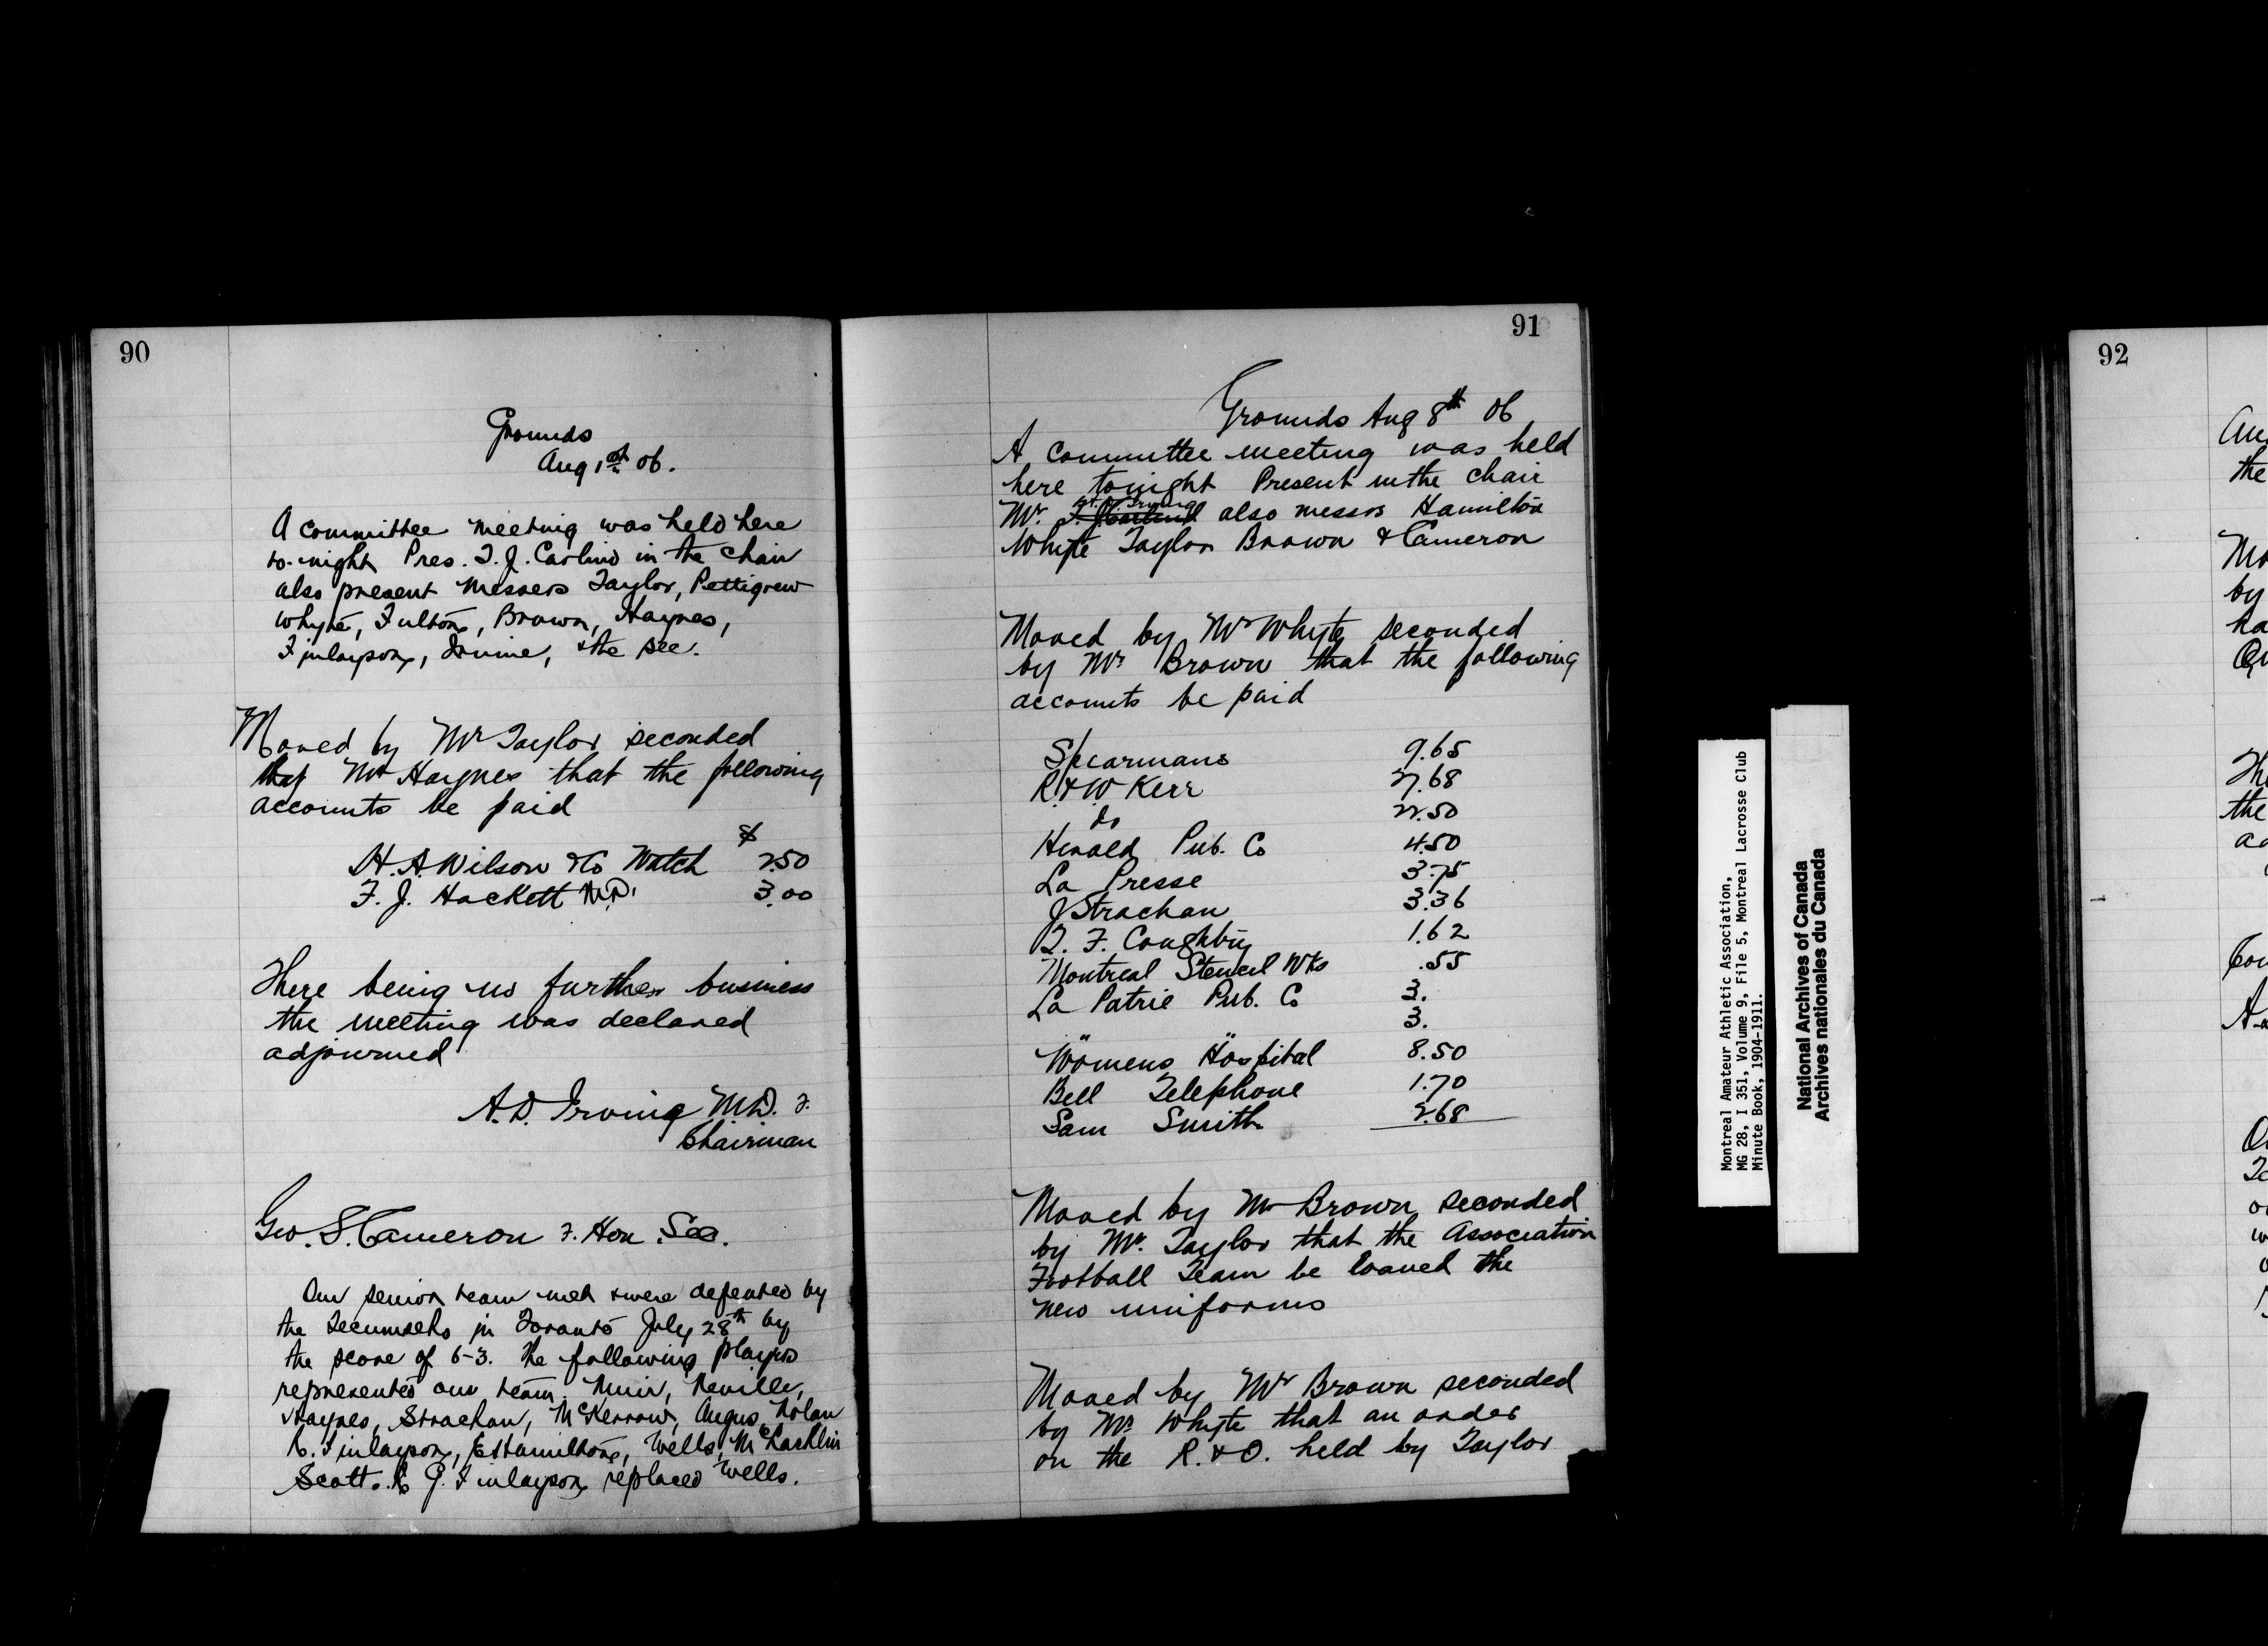 90
Grounds
Aug 1st 06.
A committee meeting was held here
to-night Pres. T. J. Carlind in the chair
also present messers Taylor, Pettigrew
Whyte, Fulton, Brown, Haynes,
Finlayson, Irvine, & the sec.
Moved by Mr Taylor seconded
Mr Haynes that the following
accounts be paid
$
H. A Wilson & Co Watch 2.50
F. J. Hackett M.D. 3.00
There being no further business
the meeting was declared
adjourned
A. D. Irving M.D.
Chairman
Geo. S. Cameron Hon. Sec.
Our senior team met & were defeated by
the Tecumsehs in Toronto July 28th by
the score of 6-3. The following players
represented our team. Muir, Neville,
Haynes, Strachan, McKerrow, Angus, Nolan
Finlayson, Hamilton, Wells, McLachlin
Scott. G. Finlayson replaced Wells.
91
Grounds Aug 8th 06
A committee meeting was held
here tonight Present in the chair
Mr. A. D. Irving also messrs Hamilton
Whyte Taylor Brown & Cameron
Moved by Mr Whyte seconded
by Mr Brown that the following
accounts be paid
Spearmans 9.65
R. & W Kerr 27.68
do 22.50
Herald Pub. Co 4.50
La Presse 3.75
J Strachan 3.36
T. F. 1.62
Montreal Stencil Wks .55
La Patrie Pub. Co 3.
" " 3.
Womens Hospital 8.50
Bell Telephone 1.70
Sam Smith 2.68
Moved by Mr Brown seconded
by Mr. Taylor that the Association
Football Team be loaned the
new uniforms
Moved by Mr Brown seconded
by Mr Whyte that an order
on the R. & O. held by Taylor
Montreal Amateur Athletic Association,
MG 28, I 351, Volume 9, File 5, Montreal Lacrosse Club
Minute Book, 1904-1911.
National Archives of Canada
Archives nationales du Canada
92
the
by
the